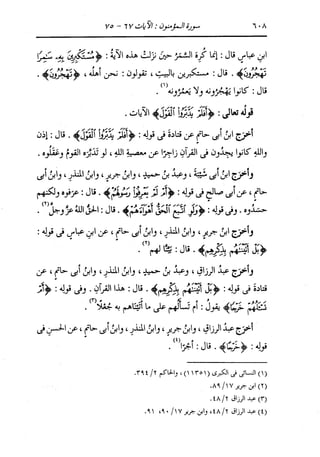 ٦٠٨ سورة المؤمنون : الآيات ٦٧ - ٧٥
ابن عباس قال : إنما كُرِه السَّمَرُ حينَ نزلت هذه الآيةُ : ﴿مُسْتَكْبِرِينَ بِهِ سَٰمِرًا
تَهْجُرُونَ﴾ . قال : مستكبرين بالبيتِ ، تقولون : نحن أهلُه ، ﴿تَهْجُرُونَ﴾ .
قال : كانوا يَهْجُرونه ولا يَعمُرونه(١) .
قولُه تعالى : ﴿أَفَلَمْ يَدَّبَّرُوا۟ ٱلْقَوْلَ﴾ الآيات .
أخرَج ابنُ أبى حاتمٍ عن قتادةَ فى قولِه : ﴿أَفَلَمْ يَدَّبَّرُوا۟ ٱلْقَوْلَ﴾ . قال : إذن
واللهِ كانوا يجِدون فى القرآنِ زاجرًا عن معصيةِ اللهِ ، لو تدَبَّره القومُ وعقَلوه .
وأخرَج ابنُ أبى شيبةَ ، وعبدُ بنُ حميدٍ ، وابنُ جريرٍ ، وابنُ المنذرِ ، وابنُ أبى
حاتمٍ ، عن أبى صالحٍ فى قولِه : ﴿أَمْ لَمْ يَعْرِفُوا۟ رَسُولَهُمْ﴾ . قال : عرَفوه ولكنهم
حسَدوه . وفى قولِه : ﴿وَلَوِ ٱتَّبَعَ ٱلْحَقُّ أَهْوَآءَهُمْ﴾ . قال : الحقُّ اللهُ عزَّ وجلَّ(٢) .
وأخرَج ابنُ جريرٍ ، وابنُ المنذرِ ، وابنُ أبى حاتمٍ ، عن ابنِ عباسٍ فى قولِه :
﴿بَلْ أَتَيْنَٰهُم بِذِكْرِهِمْ﴾ . قال : بيَّنَّا لهم(٢) .
وأخرَج عبدُ الرزاقِ ، وعبدُ بنُ حميدٍ ، وابنُ المنذرِ ، وابنُ أبى حاتمٍ ، عن
قتادةَ فى قولِه : ﴿بَلْ أَتَيْنَٰهُم بِذِكْرِهِمْ﴾ . قال : هذا القرآنُ . وفى قولِه : ﴿أَمْ
تَسْـَٔلُهُمْ خَرْجًا﴾ . يقولُ : أم تسألُهم على ما أتَيْناهم به جُعْلًا(٣) .
وأخرَج عبدُ الرزاقِ ، وابنُ جريرٍ ، وابنُ المنذرِ ، وابنُ أبى حاتمٍ ، عن الحسنِ فى
قولِه : ﴿خَرْجًا﴾ . قال : أجرًا(٤) .
(١) النسائى فى الكبرى (١١٣٥١) ، والحاكم ٣٩٤/٢ .
(٢) ابن جرير ٨٩/١٧ .
(٣) عبد الرزاق ٤٨/٢ .
(٤) عبد الرزاق ٤٨/٢ ، وابن جرير ٩٠/١٧ ، ٩١ .